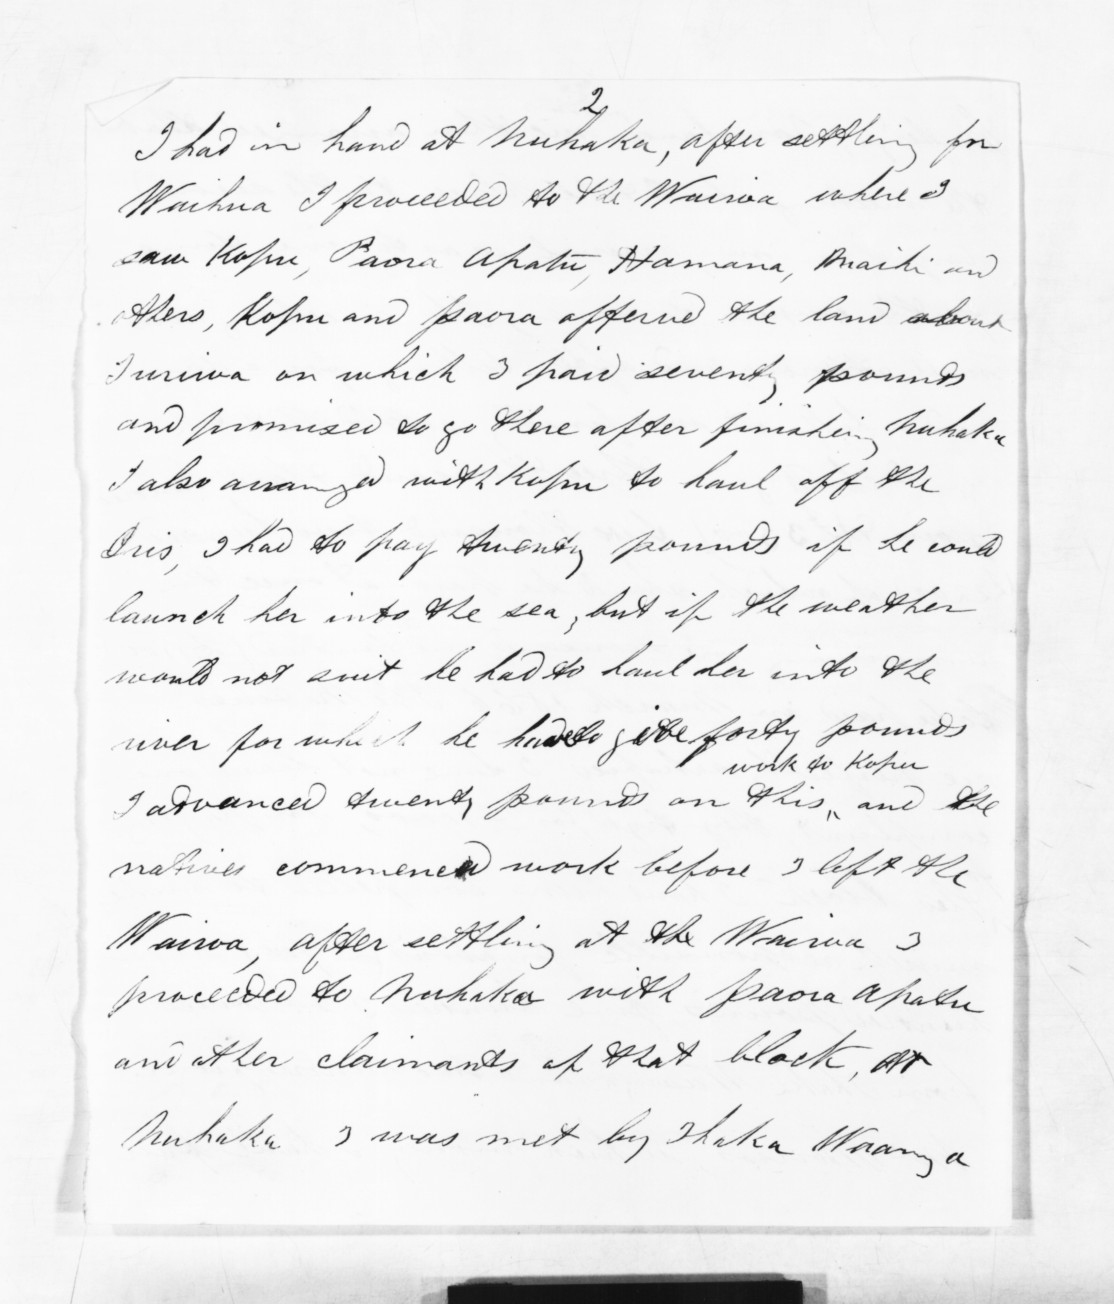 2
I had in hand at Nuhaka, after settling for
Waihua I proceeded to the Wairoa where I
saw Kopu, Paora Apatu, Hamana, Maihi and
others, Kopu and Paora offered the land about
Turiroa on which I paid seventy pounds
and promised to go there after finishing Nuhaka
I also arranged with Kopu to haul off the
Iris, I had to pay twenty pounds if he could
launch her into the sea, but if the weather
would not suit he had to haul her into the
river for which he to give forty pounds
work to Kopu
I advanced twenty pounds on this, and the
natives commenced work before I left the
Wairoa, after settling at the Wairoa I
proceeded to Nuhaka with Paora Apatu
and other claimants of that block, At
Nuhaka I was met by Ihaka Waanga